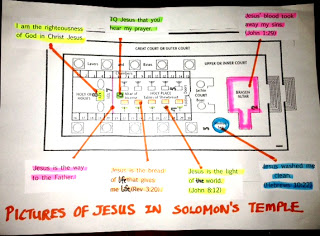 I am the righteousness
of God in Christ Jesus.
IQ Jesus that you
hear my prayer.
Jesus' blood took
away my sins.
(John 1:29)
GREAT COURT OR OUTER COURT
UPPER OR INNER COURT
Lavers and Bases
HOLY OF
HOLIES
HOLY PLACE
Table of Shewbread
Inner
COURT
Floor
BRAZEN
ALTAR
Jesus is the way
to the Father.
Jesus is the bread
of life that gives
me life (Rev 3:20).
Jesus is the light
of the world.
(John 8:12)
Jesus washed me
clean.
(Hebrews 10:22)
PICTURES OF JESUS IN SOLOMON'S TEMPLE